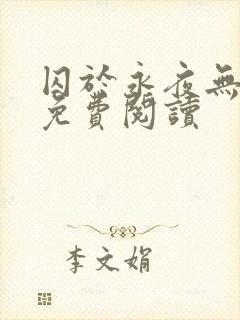 囚於永夜無
免費閱讀
李文娟